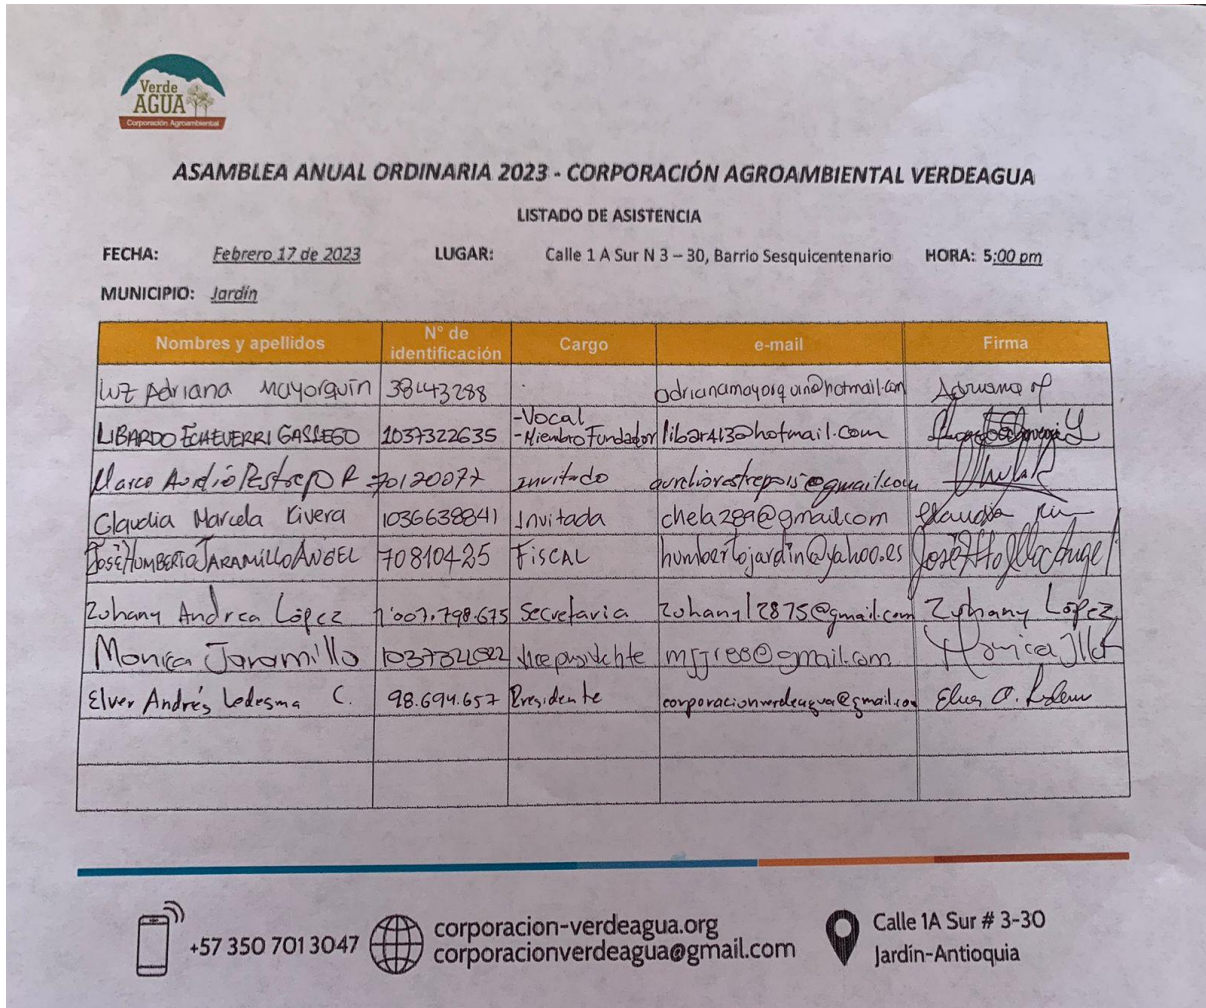 Verde
AGUA
Corporación Agroambiental
ASAMBLEA ANUAL ORDINARIA 2023 - CORPORACIÓN AGROAMBIENTAL VERDEAGUA
LISTADO DE ASISTENCIA
FECHA: Febrero 17 de 2023 LUGAR: Calle 1 A Sur N 3 – 30, Barrio Sesquicentenario HORA: 5:00 pm
MUNICIPIO: Jardín
Nombres y apellidos N° de identificación Cargo e-mail Firma
Luz Adriana Mayorquin 38443288 adrianamayorquin@hotmail.com Adriana M
LIBARDO ECHEVERRI GALLEGO 1037322635 -Vocal -Miembro Fundador libar413@hotmail.com
Marco Aurelio Restrepo R 70120077 invitado aureliorestrepois@gmail.com
Claudia Marcela Rivera 1036638841 Invitada chela289@gmail.com Claudia
JOSÉ HUMBERTO JARAMILLO ANGEL 70810425 FISCAL humbertojardin@yahoo.es
Zohany Andrea López 1'007.798.675 Secretaria zohany12875@gmail.com Zohany López
Monica Jaramillo Vicepresidente @gmail.com Monica
Elver Andrés Ledesma C. 98.694.657 Presidente corporacionverdeagua@gmail.com
+57 350 701 3047
corporacion-verdeagua.org
corporacionverdeagua@gmail.com
Calle 1A Sur # 3-30
Jardín-Antioquia